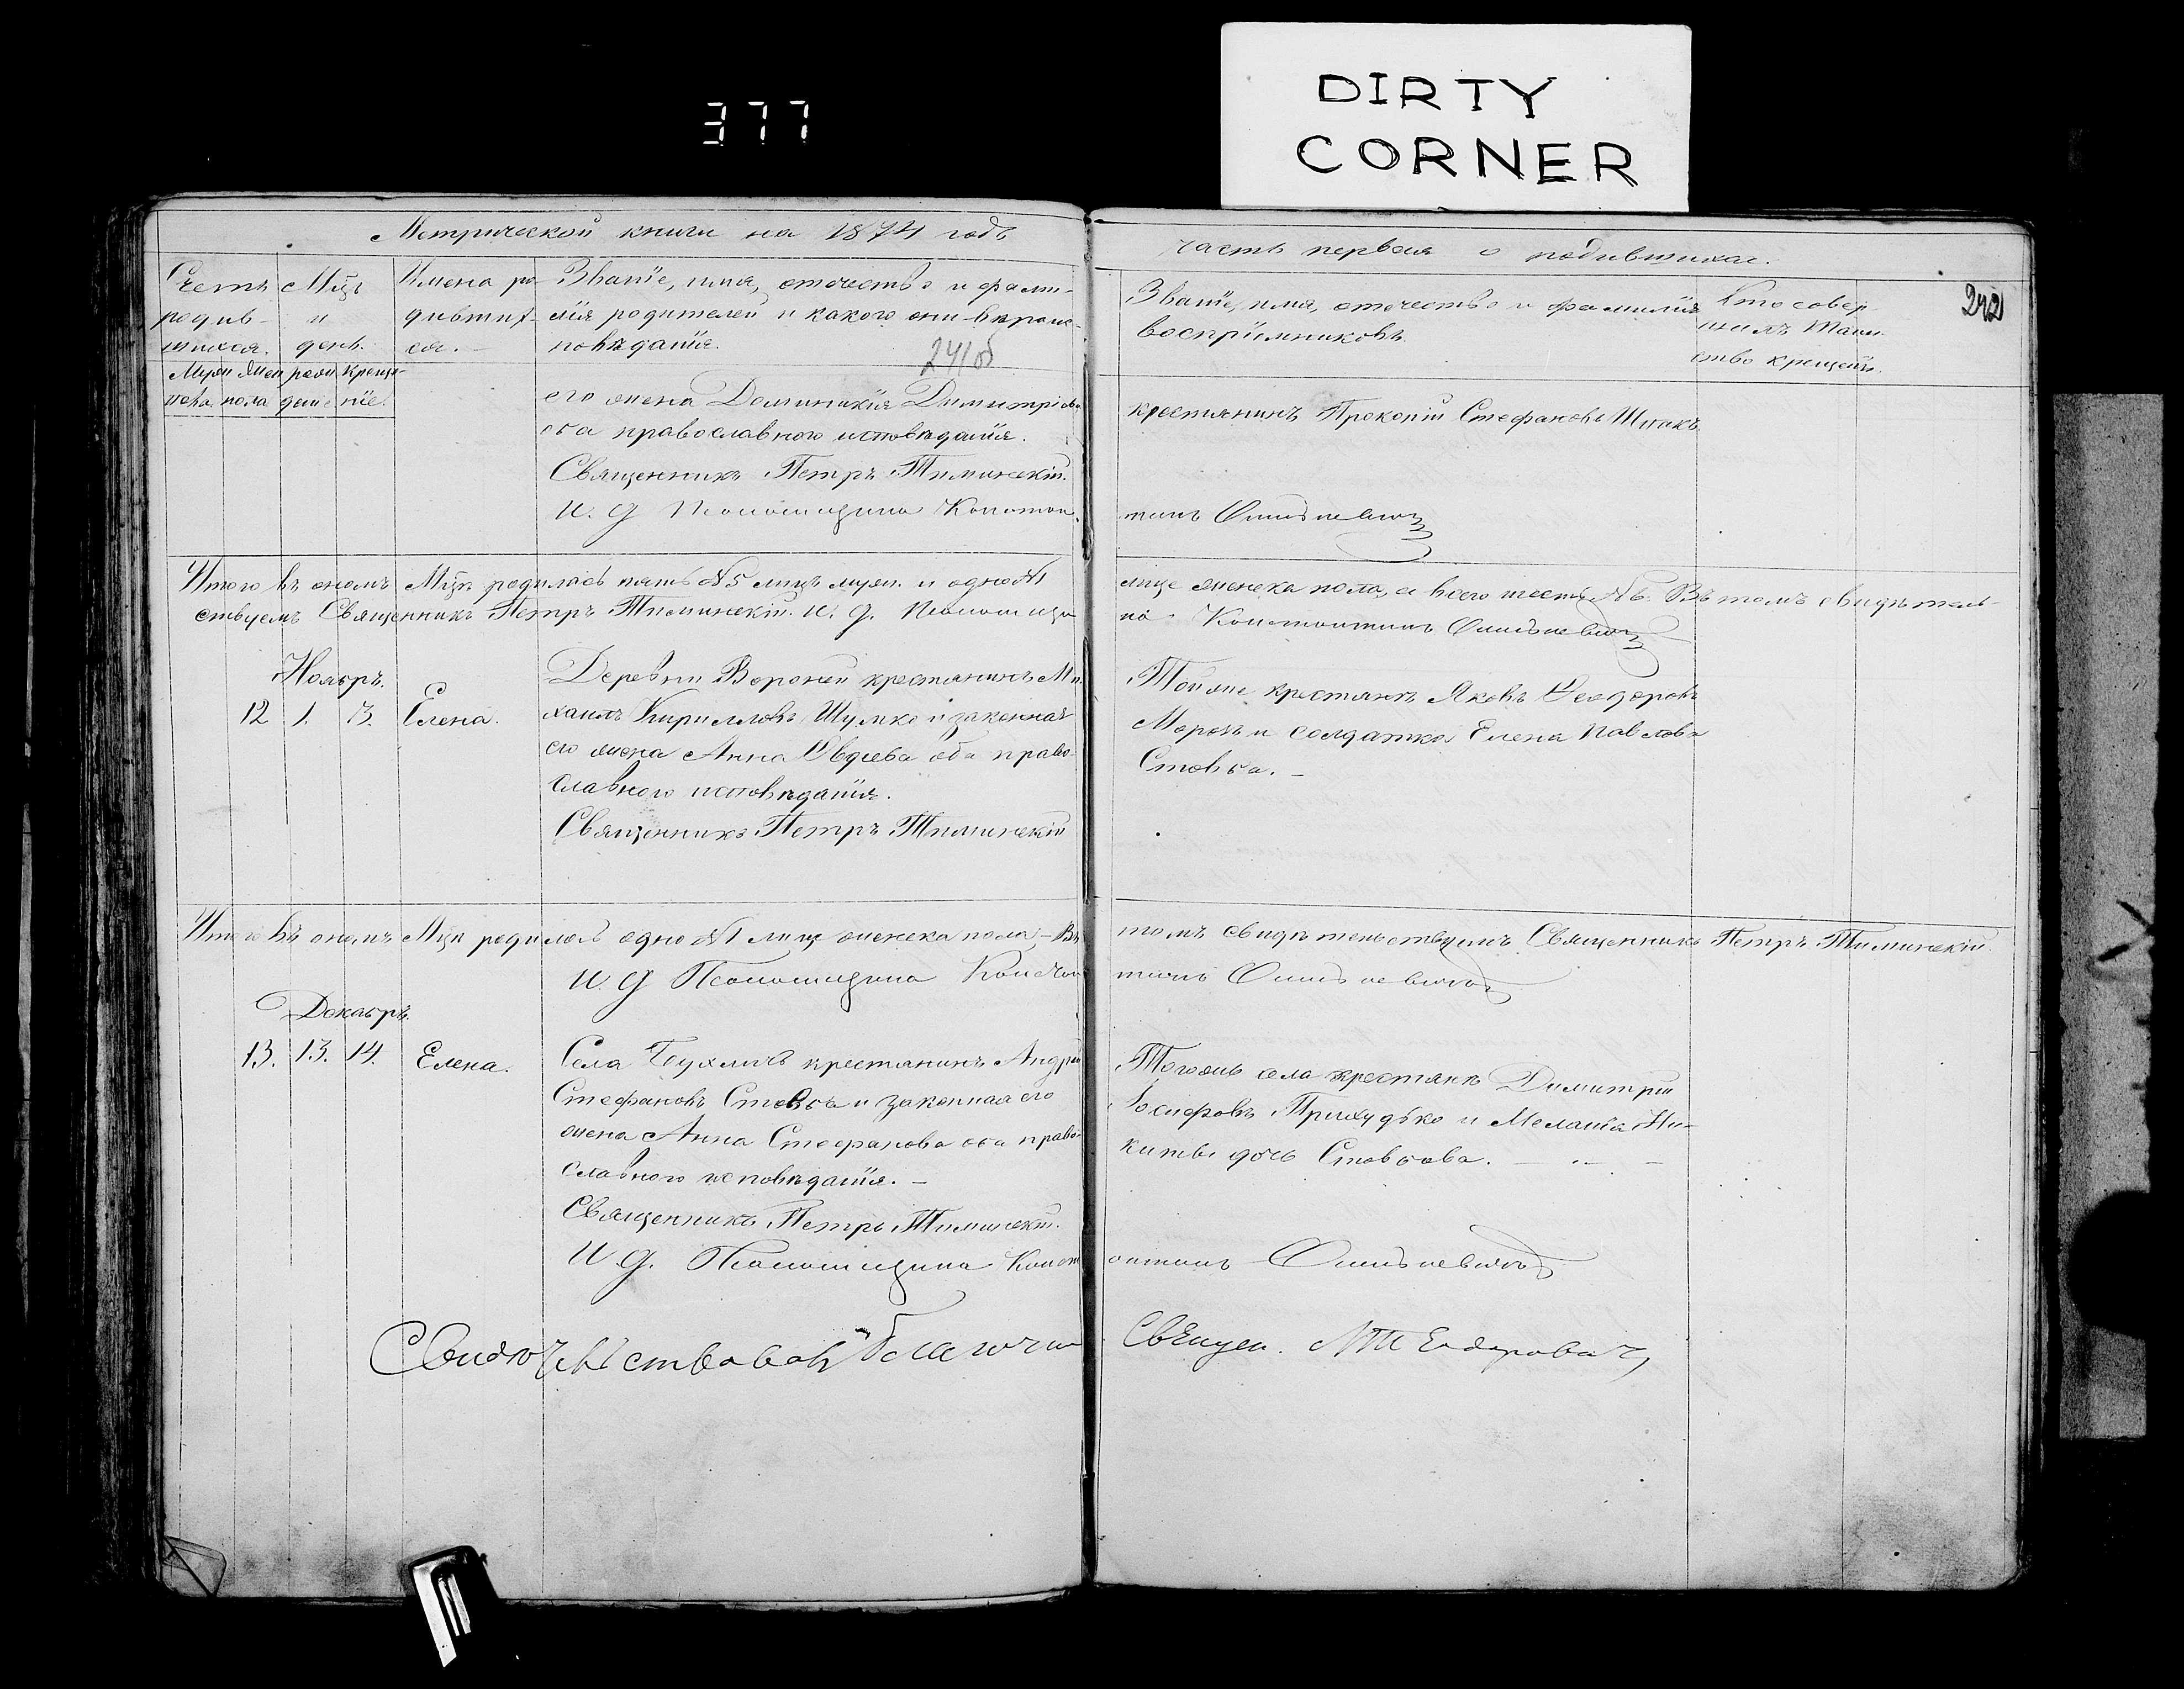 DIRTY
CORNER
377
Метрической книги на 1874 годъ
часть первая о родившихся.
Счетъ родив-шихся.
Мужеска Женска пола
Мѣцъ и день.
рожденіе крещеніе
Имена ро-
дивших-
ся.
Званіе, имя, отечество и фами-
лія родителей и какого они вѣроис-
повѣданія.
241об
Званіе, имя, отечество и фамилія
воспріемниковъ.
Кто совер-
шилъ Таин-
ство крещенія.
242
его жена Домникія Димитріева
оба православного исповѣданія.
Священникъ Петръ Тиминскій.
И. д Псаломщика Констан
крестянинъ Прокопій Стефановъ Шпакъ
тинъ
Итого въ ономъ Мѣцѣ родилось пять №5 лицъ муж. и одно №1
лице женска пола, а всего шесть №6. Въ томъ свидѣтель-
ствуемъ Священникъ Петръ Тиминскій. И. д. Псаломщи
ка Константинъ
Ноябрь.
12 1. 3. Елена.
Деревни Вороней крестянинъ Ми-
хаилъ Кирилловъ Шумко и законная
его жена Анна Авдеева оба право-
славного исповѣданія.
Священникъ Петръ Тиминскій
Тойже крестянъ Яковъ Ѳеодоровъ
Морозъ и солдатка Елена Павлова
Стовба.
Итого въ ономъ Мѣцѣ родилось одно №1 лице женска пола. – Въ
томъ свидѣтельствуемъ Священникъ Петръ Тиминскій.
И. д Псаломщика Констан
тинъ
Декабрь.
13. 13. 14. Елена.
Села крестянинъ Андрей
Стефановъ Стовба и законная его
жена Анна Стефанова оба право-
славного исповѣданія. –
Священникъ Петръ Тиминскій.
И д. Псаломщика Конст
Тогожъ села крестянъ Димитрій
Іосифовъ Приходько и Меланія Ни-
киты дочь Стовбова. –
антинъ
Свидѣтельствовалъ Благочин
Священ.